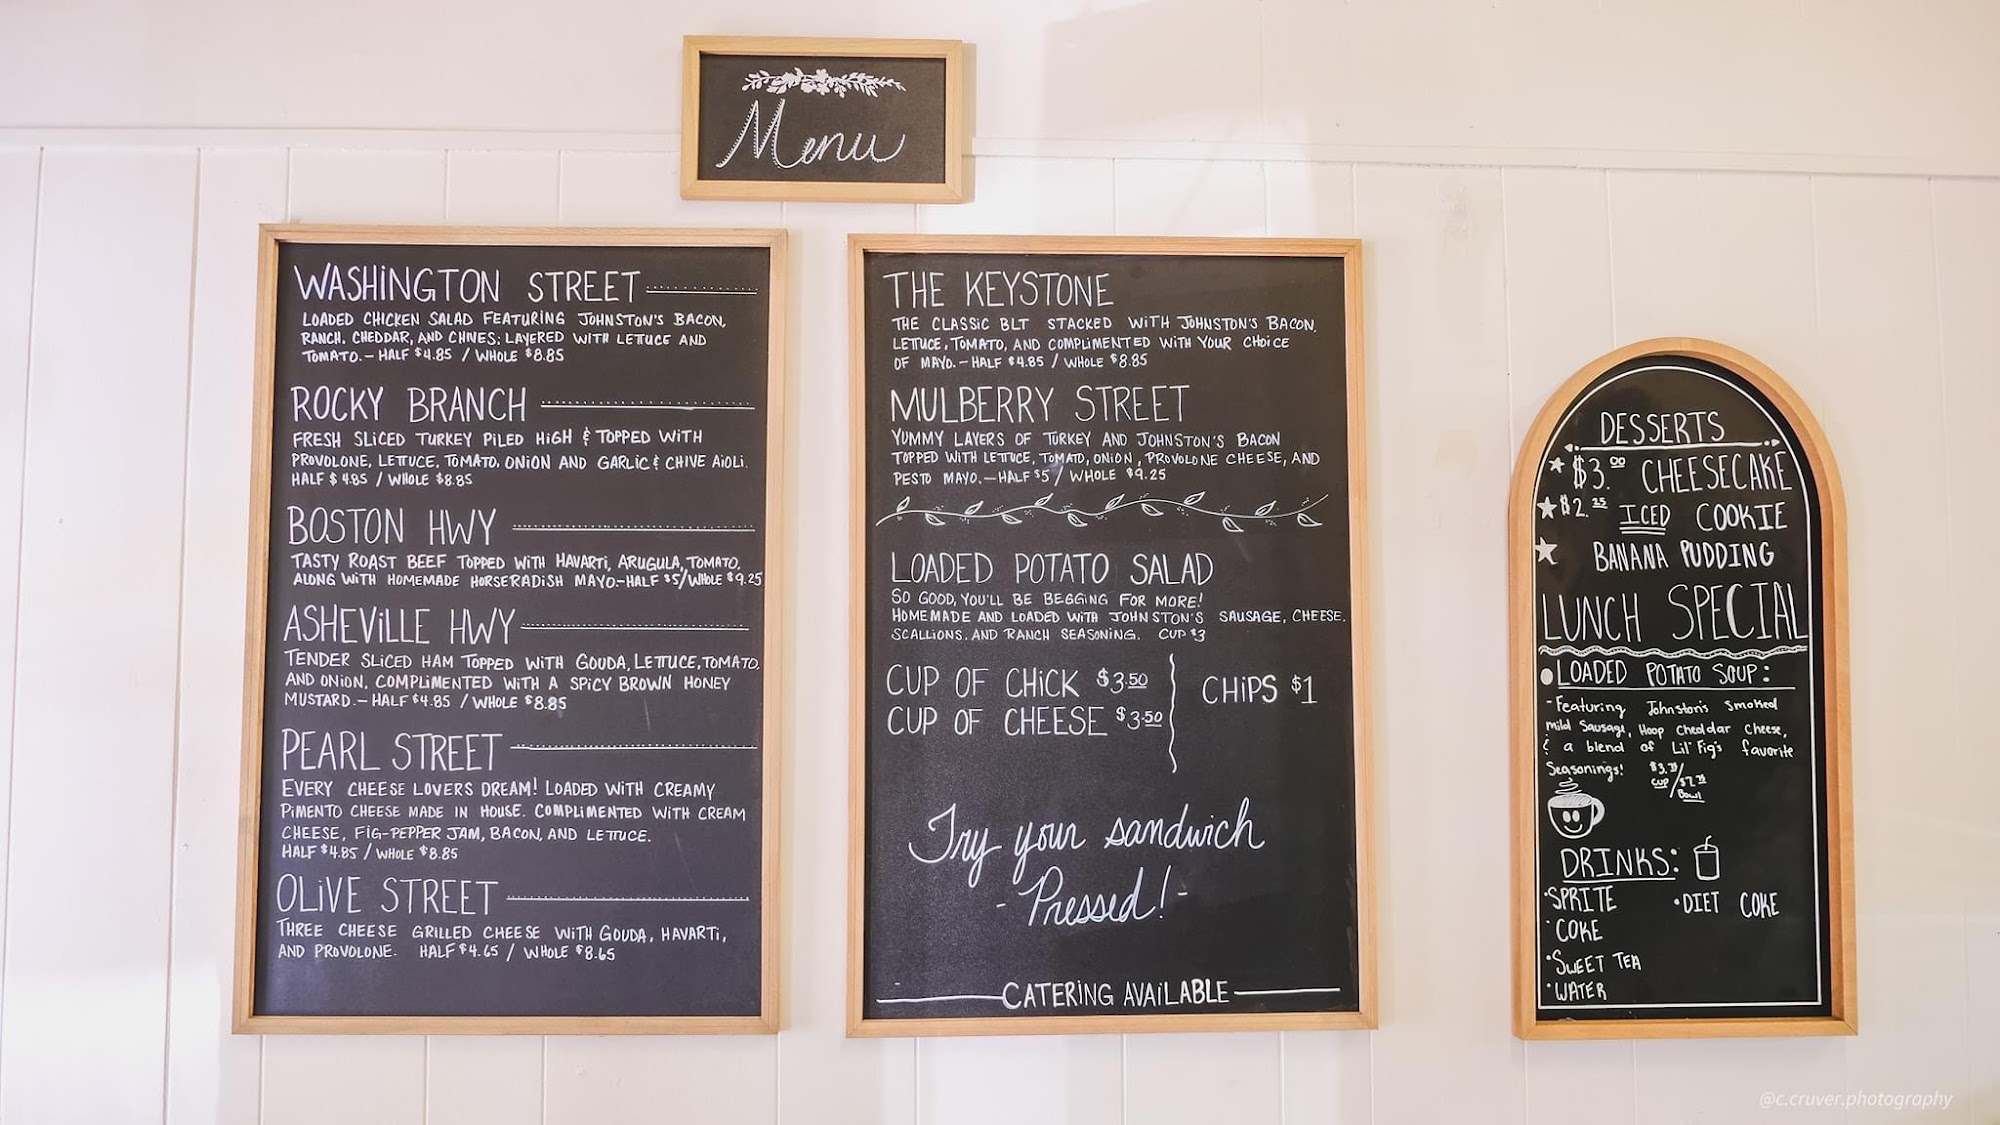 Menu
WASHINGTON STREET
LOADED CHICKEN SALAD FEATURING JOHNSTON'S BACON,
RANCH, CHEDDAR, AND CHIVES; LAYERED WITH LETTUCE AND
TOMATO. - HALF $4.85 / WHOLE $8.85
ROCKY BRANCH
FRESH SLICED TURKEY PILED HIGH & TOPPED WITH
PROVOLONE, LETTUCE, TOMATO, ONION AND GARLIC & CHIVE AIOLI.
HALF $4.85 / WHOLE $8.85
BOSTON HWY
TASTY ROAST BEEF TOPPED WITH HAVARTI, ARUGULA, TOMATO,
ALONG WITH HOMEMADE HORSERADISH MAYO.-HALF $5/WHOLE $9.25
ASHEVILLE HWY
TENDER SLICED HAM TOPPED WITH GOUDA, LETTUCE, TOMATO,
AND ONION. COMPLIMENTED WITH A SPICY BROWN HONEY
MUSTARD. - HALF $4.85 / WHOLE $8.85
PEARL STREET
EVERY CHEESE LOVERS DREAM! LOADED WITH CREAMY
PIMENTO CHEESE MADE IN HOUSE. COMPLIMENTED WITH CREAM
CHEESE, FIG-PEPPER JAM, BACON, AND LETTUCE.
HALF $4.85 / WHOLE $8.85
OLIVE STREET
THREE CHEESE GRILLED CHEESE WITH GOUDA, HAVARTI,
AND PROVOLONE. HALF $4.65 / WHOLE $8.65
THE KEYSTONE
THE CLASSIC BLT STACKED WITH JOHNSTON'S BACON,
LETTUCE, TOMATO, AND COMPLIMENTED WITH YOUR CHOICE
OF MAYO. - HALF $4.85 / WHOLE $8.85
MULBERRY STREET
YUMMY LAYERS OF TURKEY AND JOHNSTON'S BACON
TOPPED WITH LETTUCE, TOMATO, ONION, PROVOLONE CHEESE, AND
PESTO MAYO. - HALF $5 / WHOLE $9.25
LOADED POTATO SALAD
SO GOOD, YOU'LL BE BEGGING FOR MORE!
HOMEMADE AND LOADED WITH JOHNSTON'S SAUSAGE, CHEESE,
SCALLIONS, AND RANCH SEASONING. CUP $3
CUP OF CHICK $3.50
CUP OF CHEESE $3.50
CHIPS $1
Try your sandwich
- Pressed! -
CATERING AVAILABLE
DESSERTS
$3.00 CHEESECAKE
$2.25 ICED COOKIE
BANANA PUDDING
LUNCH SPECIAL
LOADED POTATO SOUP:
- Featuring Johnston's Smoked
mild Sausage, Hoop Cheddar Cheese,
& a blend of Lil' Fig's favorite
Seasonings!
CUP /
Bowl
DRINKS:
• SPRITE • DIET COKE
• COKE
• SWEET TEA
• WATER
@c.cruver.photography